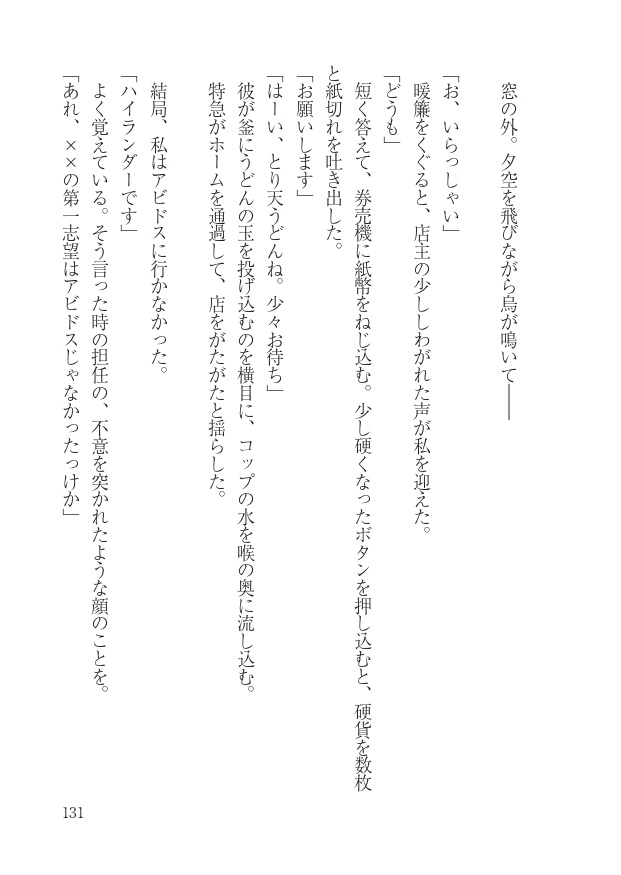 窓の外。夕空を飛びながら烏が鳴いて――
「お、いらっしゃい」
暖簾をくぐると、店主の少ししわがれた声が私を迎えた。
「どうも」
短く答えて、券売機に紙幣をねじ込む。少し硬くなったボタンを押し込むと、硬貨を数枚
と紙切れを吐き出した。
「お願いします」
「はーい、とり天うどんね。少々お待ち」
彼が釜にうどんの玉を投げ込むのを横目に、コップの水を喉の奥に流し込む。
特急がホームを通過して、店をがたがたと揺らした。
結局、私はアビドスに行かなかった。
「ハイランダーです」
よく覚えている。そう言った時の担任の、不意を突かれたような顔のことを。
「あれ、××の第一志望はアビドスじゃなかったっけか」
131